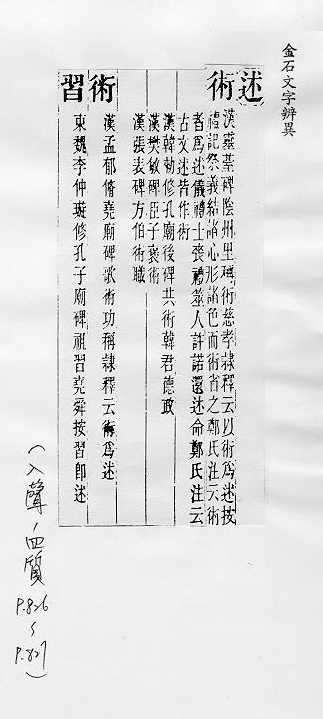 金石文字辨異
述
術
漢嚴墓碑陰州里稱術慈孝隸釋云以術爲述按
禮記祭義結諸心形諸色而術省之鄭氏注云術
者爲述儀禮士喪禮筮人許諾還述命鄭氏注云
古文述皆作術
漢韓勑修孔廟後碑共術韓君德政
漢樊敏碑臣子褒術
漢張表碑方伯術職
術
漢孟郁脩堯廟碑歌術功稱隸釋云術爲述
習
東魏李仲璇修孔子廟碑祖習堯舜按習即述
(入聲,四質 P.826~P.827)